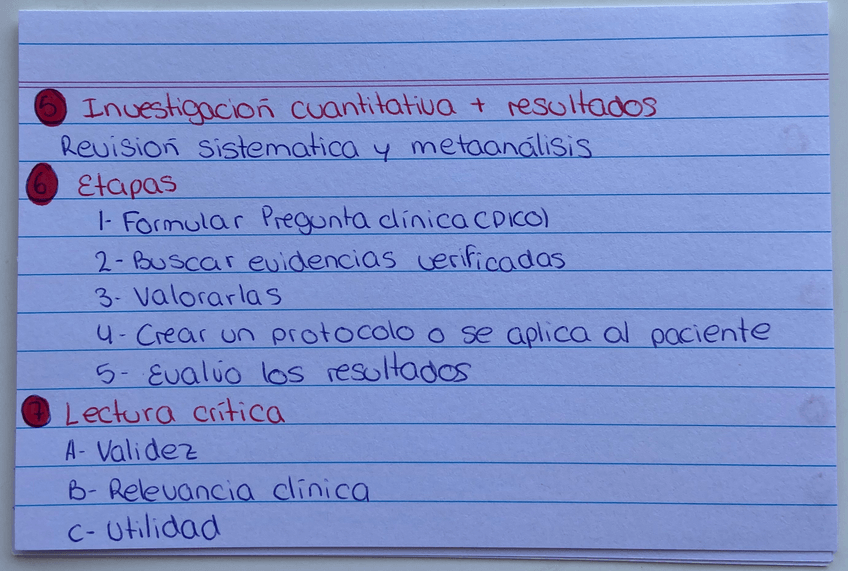 5 Investigación cuantitativa + resultados
Revisión sistematica y metaanálisis
6 Etapas
1- Formular Pregunta clínica (PICO)
2- Buscar evidencias verificadas
3- Valorarlas
4- Crear un protocolo o se aplica al paciente
5- Evalúo los resultados
7 Lectura crítica
A- Validez
B- Relevancia clínica
C- Utilidad